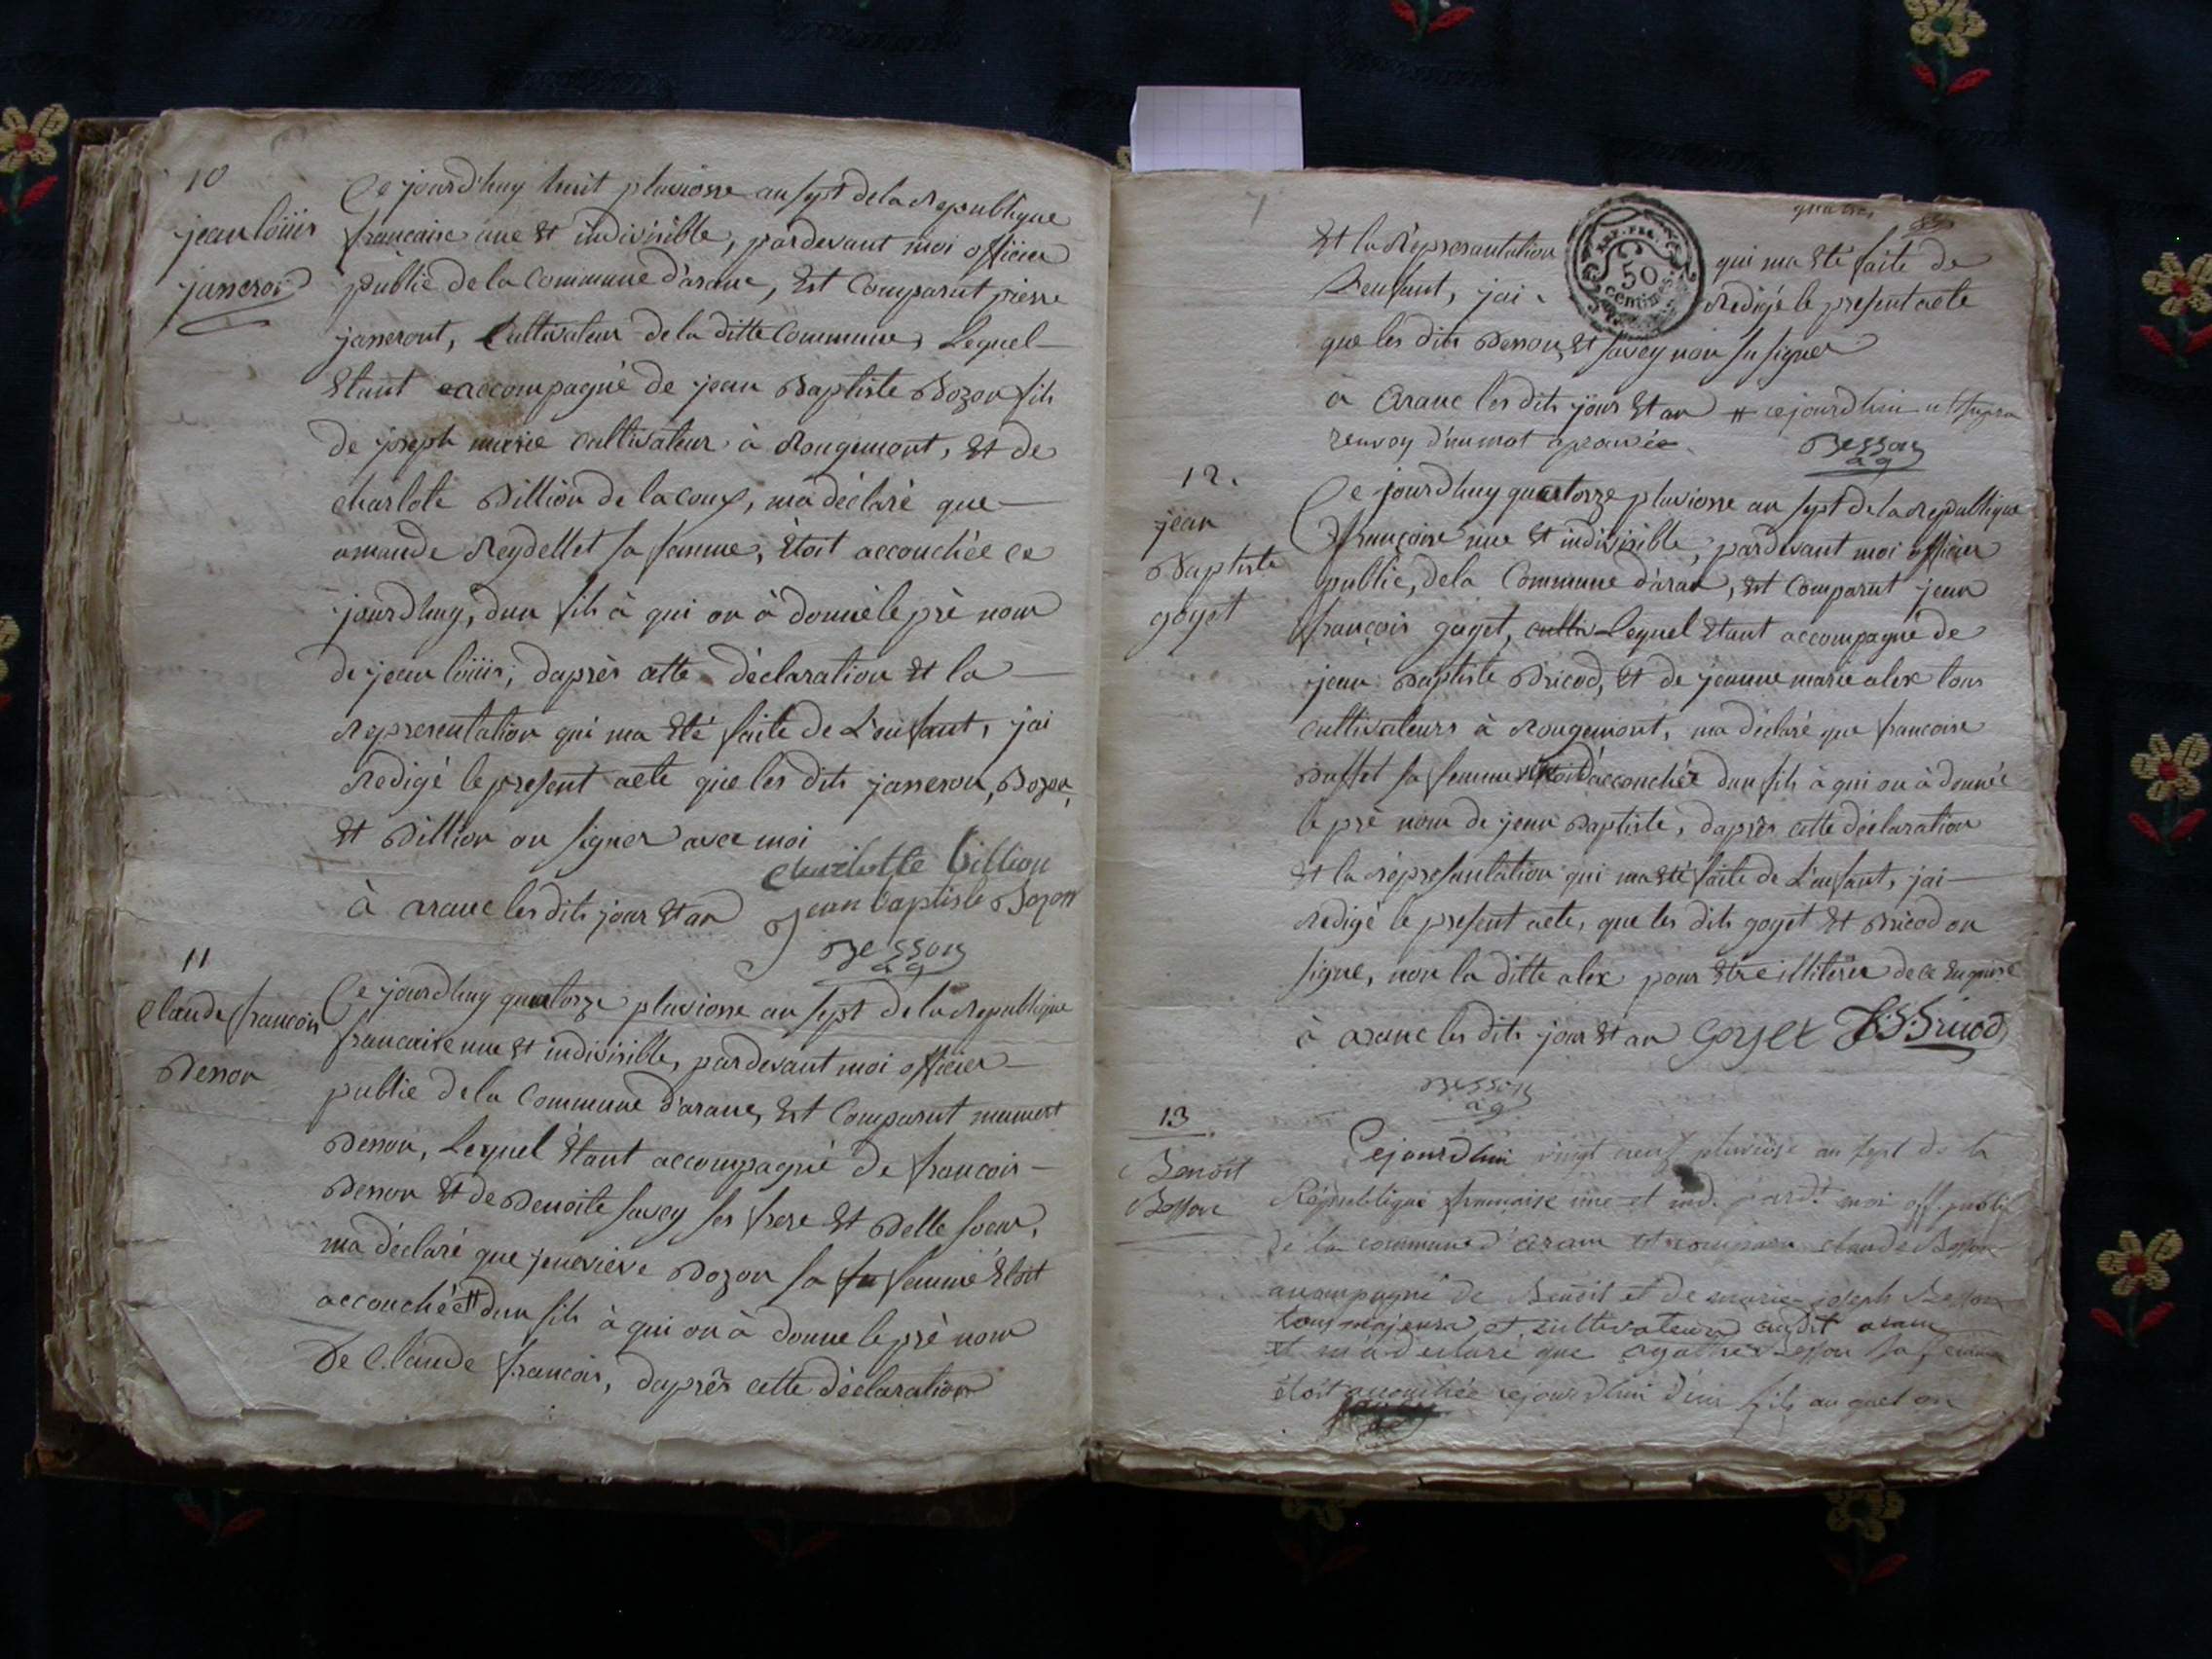 10
jean loüis
janeron
Ce jourd'huy huit pluviosse an sept de la republique
francaise une et indivisible, pardevant moi officier
public de la Commune d'aranc, Est Comparut pierre
janeront, Cultivateur de la ditte Commune, Lequel
Etant accompagné de jean Baptiste Bozon fils
de joseph marie cultivateur à Rougemont, Et de
charlote Billion de la coux, ma déclaré que
amande Reydellet sa femme, étoit accouchée ce
jourdhuy, dun fils à qui on à donné le pré nom
de jean loüis, daprès cette déclaration Et la
representation qui ma Eté faite de L'enfant, jai
Redigé le present acte que les dits janeron, Bozon,
Et Billion on signer avec moi
à aranc les dits jour Et an
Charlotte billion
Jean baptiste Bozon
Besson
a g
11
Claude francois
Besson
Ce jourdhuy quatorze pluviosse an sept de la Republique
francaise une Et indivisible, pardevant moi officier
public de la Commune d'aranc, Est Comparut mamert
Besson, Lequel Etant accompagné de francois
Besson Et de Benoite savey ses frere Et Belle soeur,
ma déclaré que jeneviéve Bozon sa femme étoit
accouchée # dun fils à qui on à donne le pré nom
De Claude francois, daprês cette déclaration
quatres
Et la Représantation qui ma Eté faite de
Lenfant, jai Redigé le present acte
REP. FRA.
50
centimes
que les dits Besson, Et savey non su signer
à Aranc les dits jour Et an # cejourdhui ut supra
renvoy d'un mot aprouvée
Besson
a g
12.
jean
Baptiste
goyet
Ce jourdhuy quatorze pluviosse an sept de la republique
françoise une Et indivisible, pardevant moi officier
public, dela Commune d'aran, Est Comparut jean
françois goyet, cultiv Lequel Etant accompagné de
jean Baptiste Bricod, Et de jeanne marie alex tous
cultivateurs à Rougemont, ma déclaré que francoise
Buffet sa femme étoit accouchée dun fils à qui on à donnée
le pré nom de jean Baptiste, daprès cette déclaration
Et la répresentation qui ma Eté faite de L'enfant, jai
Redigé le present acte, que les dits goyet Et Bricod on
signe, non la ditte alex pour être illiterée de ce Enquise
à aranc les dits jour Et an Goyet J.B. Bricod
Besson
a g
13
Benoit
Besson
Cejourdhui vingt neuf pluviôse an sept de la
République française une et ind. pardt moi off. public
de la commune d'aranc est comparu claude Besson
accompagné de Benoit et de marie joseph Besson
tous majeurs et cultivateurs audit aranc
et m'a déclaré que agathe Besson sa femme
étoit accouchée cejourdhui d'un fils auquel on